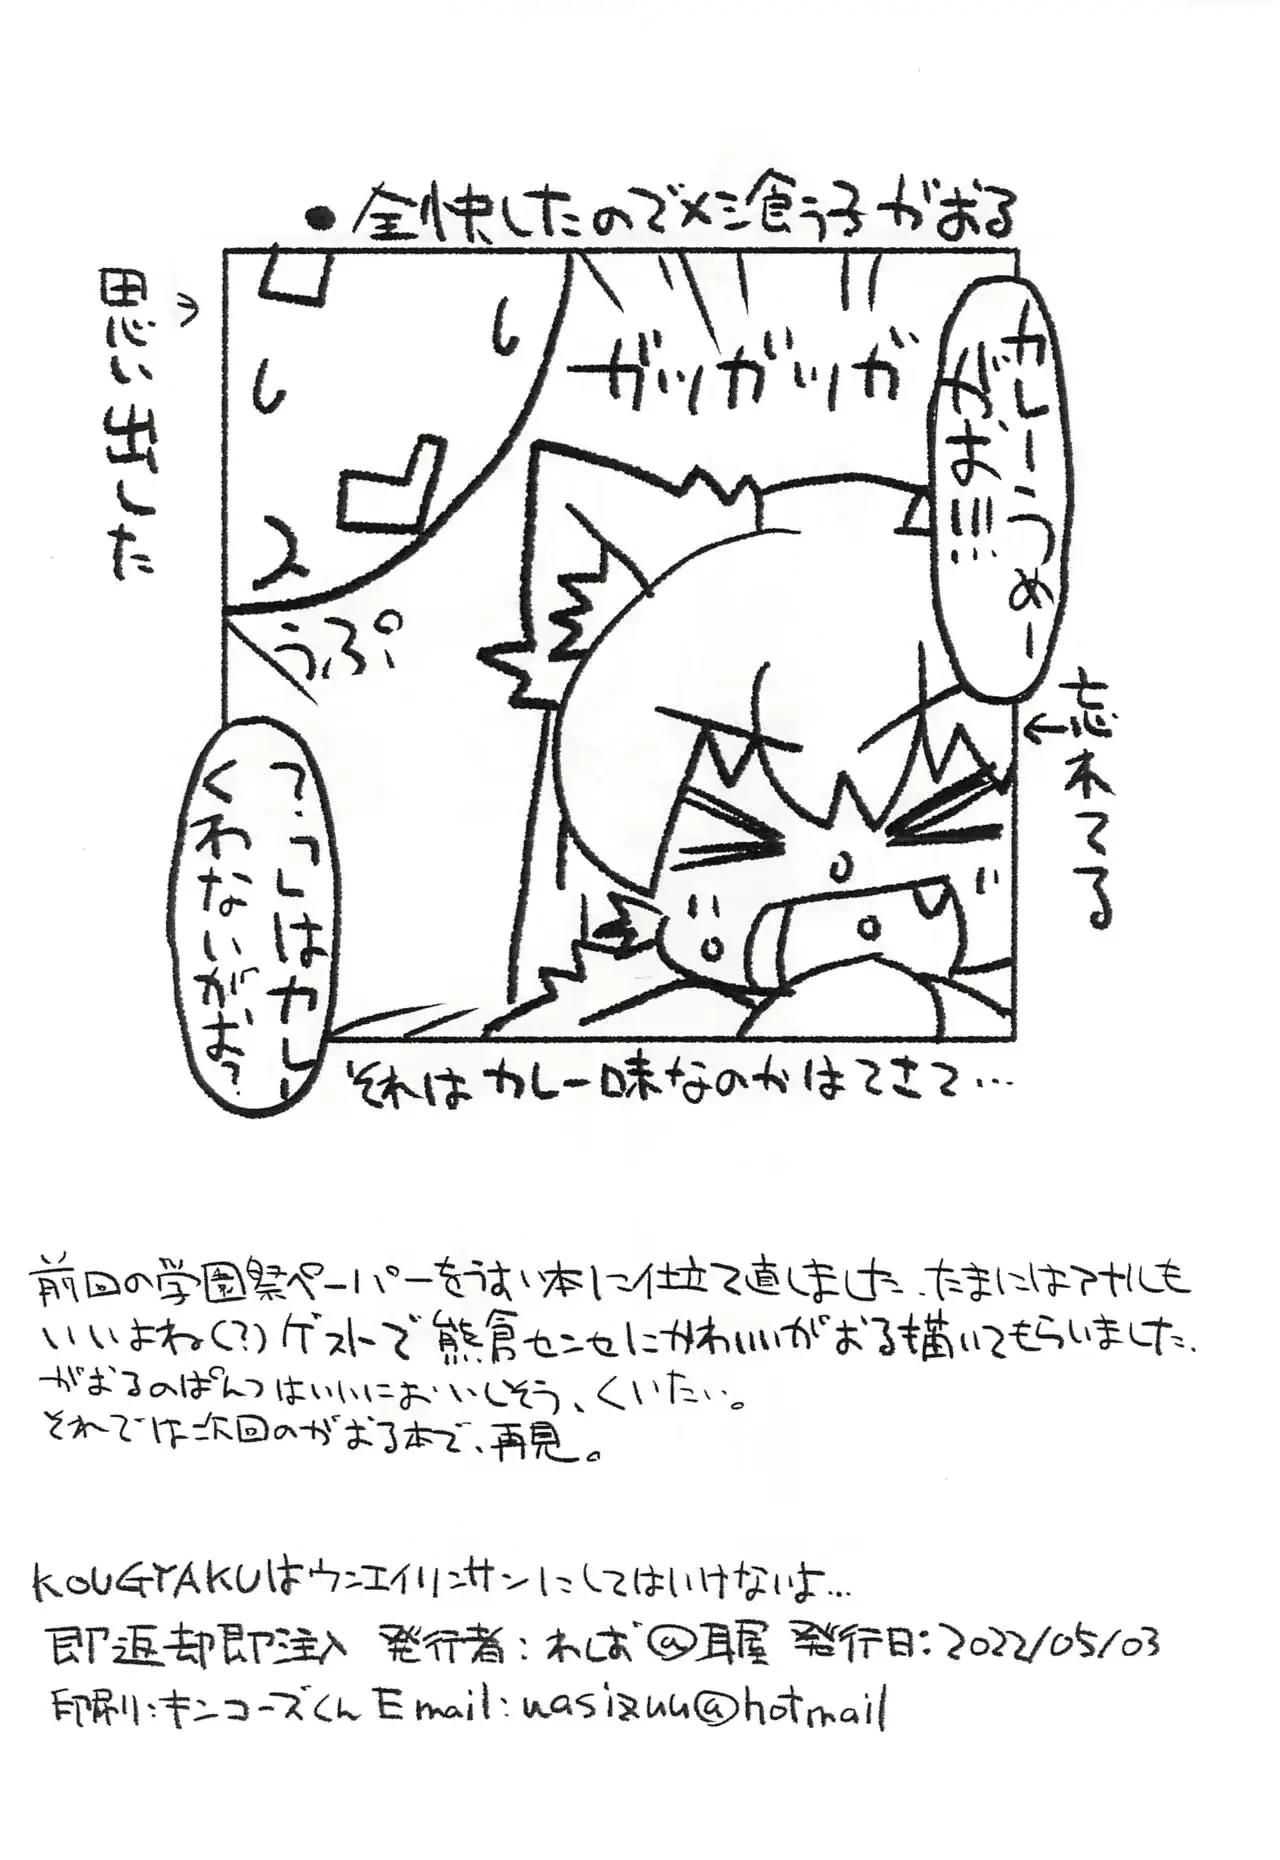 ●全快したのでメシ食う子がおる
カレーうめー
がお!!!
ガツガツガ
思い出した
うぷ
忘れてる
?っしはカレー
くわないがお?
それはカレー味なのかはてさて…
前回の学園祭ペーパーをうすい本に仕立て直しました、たまにはアナルも
いいよね(?)ゲストで熊倉センセにかわいいがおる描いてもらいました、
がおるのぱんつはいいにおいしそう、くいたい。
それでは次回のがおる本で、再見。
KOUGYAKUはウンエイリンサンにしてはいけないよ…
即返却即注入 発行者:わしお@耳屋 発行日:2022/05/03
印刷:キンコーズくん Email:wasizuu@hotmail